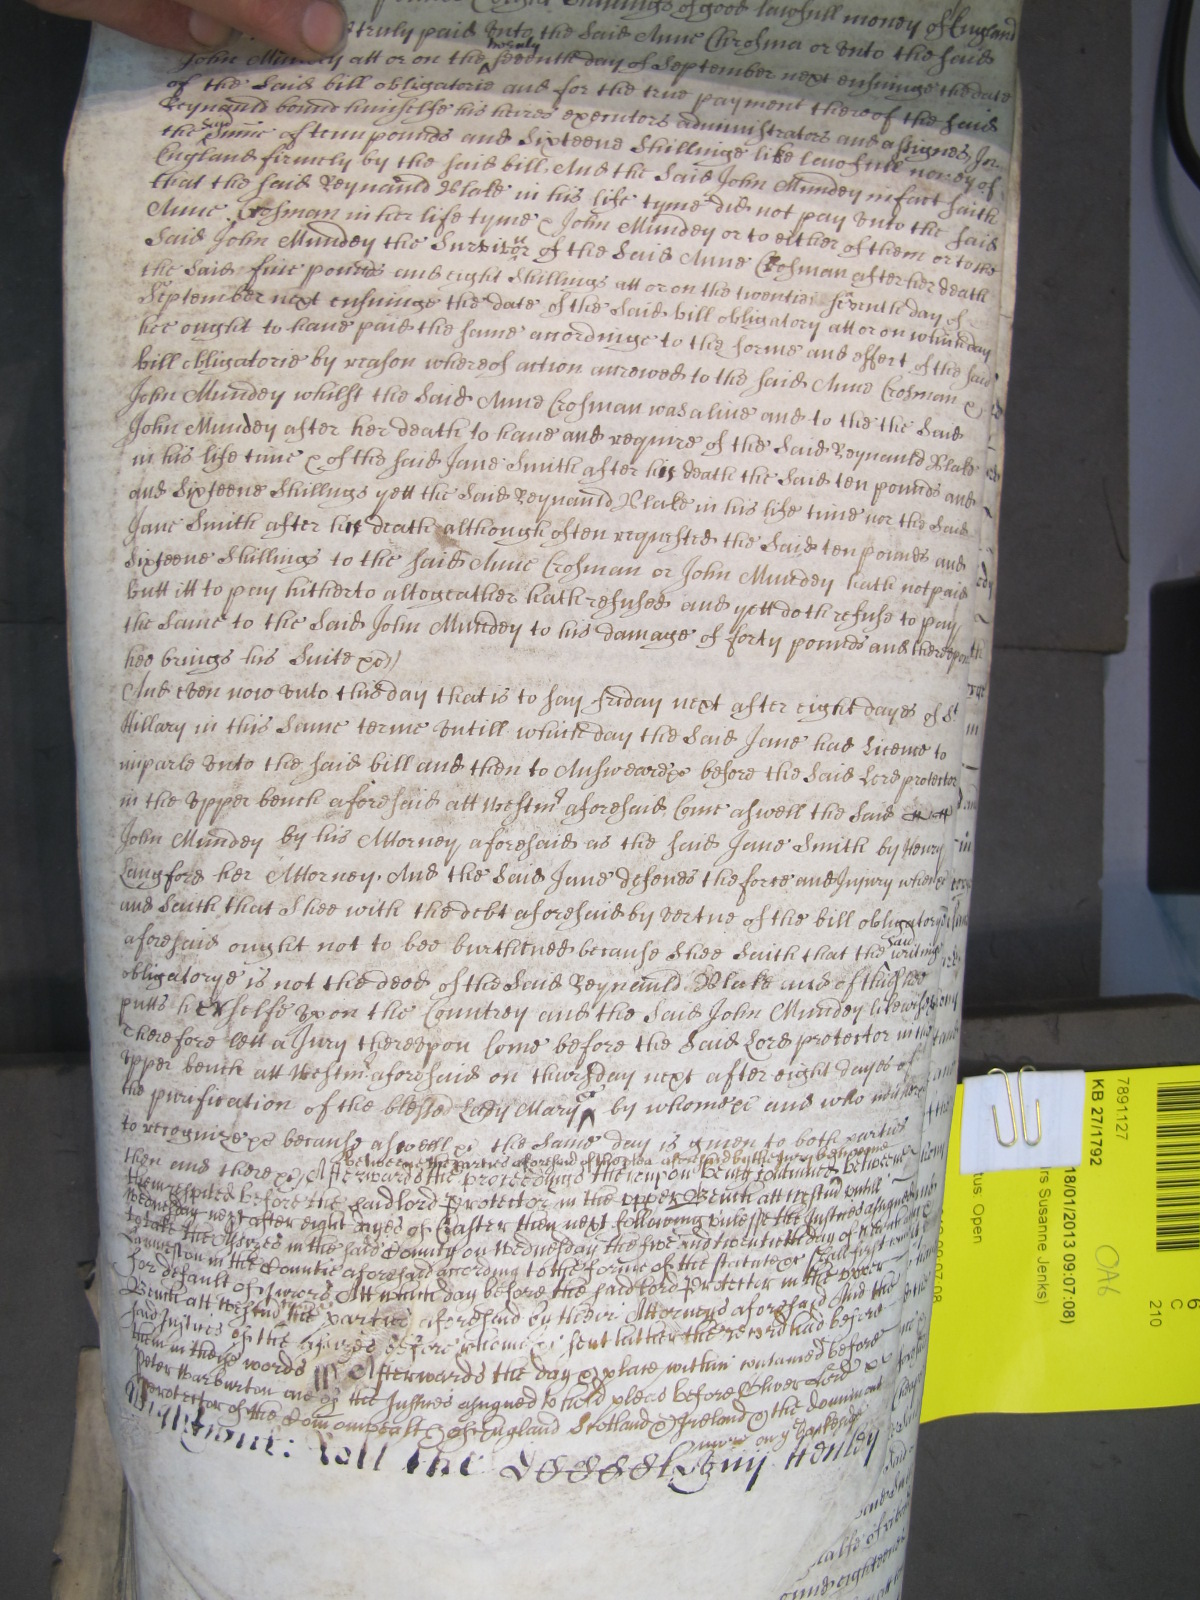 shillings of good lawfull money of England
truly paid unto the said Anne Crosman or unto the said
John Mundey att or on the twenty seventh day of September next ensuinge the date
of the said bill obligatorie and for the true payment thereof the said
Reynauld bound himselfe his heires executors administrators and assignes, In
the said summe of tenn pounds and sixteene shillinge like lawfull money of
England firmely by the said bill. And the said John Mundey in fact saith
that the said Reynauld Blake in his life tyme did not pay unto the said
Anne Crosman in her life tyme & John Mundey or to either of them or to the
said John Mundey the survivor of the said Anne Crosman after her death
the said five pounds and eight shillings att or on the twentie seventh day of
September next ensuinge the date of the said bill obligatory att or on which day
hee ought to have paid the same accordinge to the forme and effect of the said
bill obligatorie by reason whereof action accrewed to the said Anne Crosman &
John Mundey whilst the said Anne Crosman was alive and to the the said
John Mundey after her death to have and require of the said Reynauld Blake
in his life time & of the said Jane Smith after his death the said ten pounds and
and sixteene shillings yett the said Reynauld Blake in his life time nor the said
Jane Smith after his death although often requested the said ten pounds and
sixteene shillings to the said Anne Crosman or John Mundey hath not paid
butt itt to pay hitherto altogeather hath refused and yett doth refuse to pay
the same to the said John Mundey to his damage of forty pounds and thereupon
hee brings his suite &c//
And even now unto this day that is to say friday next after eight dayes of St
Hillary in this same terme untill which day the said Jane had licence to
imparle unto the said bill and then to Answeare &c before the said Lord protector
in the upper bench aforesaid att Westmr aforesaid Come aswell the said
John Mundey by his Attorney aforesaid as the said Jane Smith by Henry
Langford her Attorney. And the said Jane defends the force and Injury when &c
and saith that shee with the debt aforesaid by vertue of the bill obligatory
aforesaid ought not to bee burthened because shee saith that the said writing
obligatorye is not the deed of the said Reynauld Blake and of this shee
putts herselfe upon the Countrey and the said John Mundey likewise
Therefore lett a Jury thereupon Come before the said Lord protector in the
upper bench att Westmr aforesaid on thursday next after eight dayes of
the purification of the blessed Lady Mary by whome &c and who neither
to recognize &c because aswell &c the same day is given to both parties
then and there &c Afterwards the proceedings thereupon being continued betweene
betweene the parties aforesaid of the plea aforesaid by the Jury being
them respited before the said lord Protector in the upper Bench att Westmr untill
Wednesday next after eight dayes of Easter then next following unlesse the Justices assigned
to take the Assizes in the said County on Wednesday the five and twentieth day of
Launceston in the Countie aforesaid according to the forme of the statute &c shall first
for default of Jurors Att which day before the said lord Protector in the upper
Bench att Westmr the parties aforesaid by their Attorneys aforesaid And the
said Justices of the Assizes before whome &c sent hither the record had before
them in these words Afterwards the day & place within contained before
Peter Warburton one of the Justices assigned to hold pleas before Oliver Lord
Protector of the Comonwealth of England Scotland & Ireland & the dominions
more on ye backside
Roll the
7891127
KB 27/1792
18/01/2013 09:07:08)
rs Susanne Jenks)
tus: Open
OA6
C
210